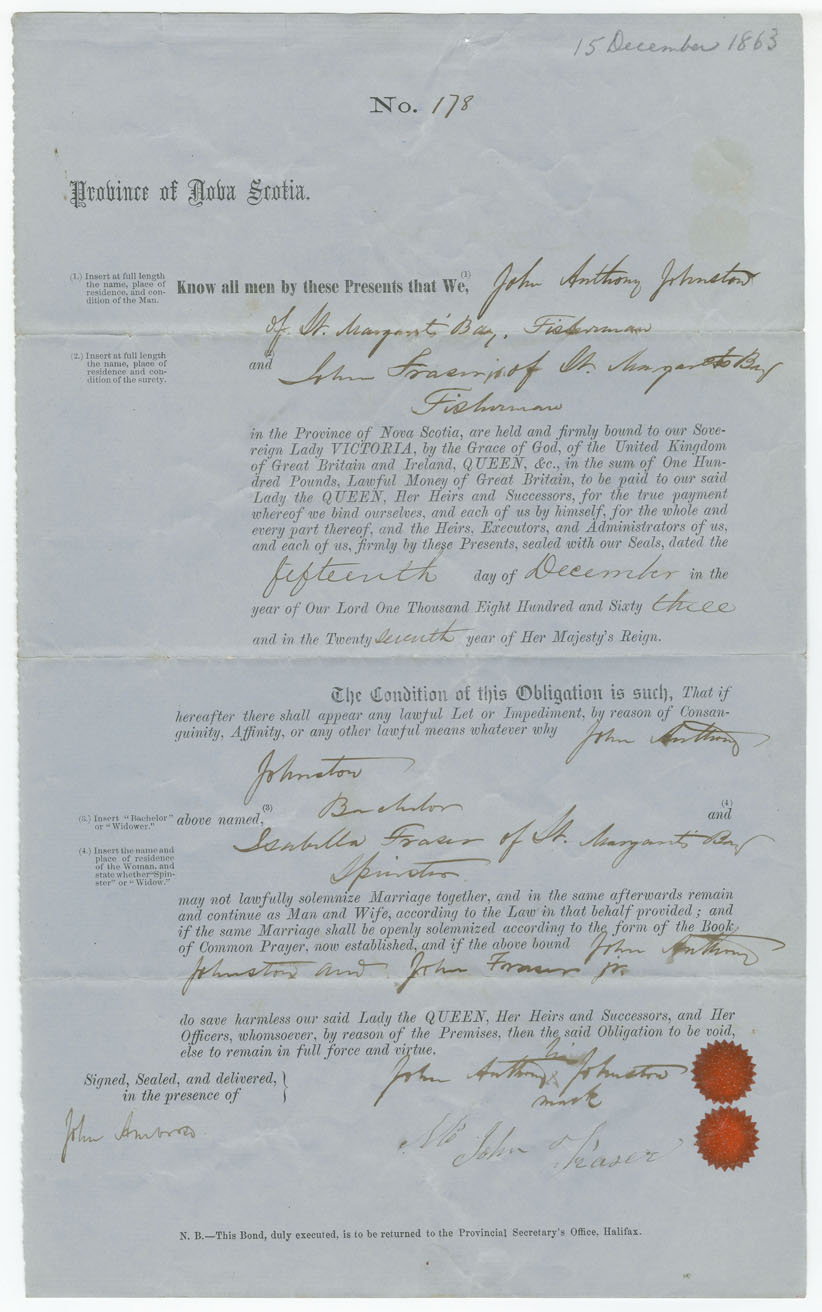 15 December 1863
No. 178
Province of Nova Scotia.
(1.) Insert at full length
the name, place of
residence, and con-
dition of the Man.
Know all men by these Presents that We, (1) John Anthony Johnston
of St. Margaret's Bay, Fisherman
(2.) Insert at full length
the name, place of
residence and con-
dition of the surety.
and (2) John Fraser jr. of St. Margarets Bay
Fisherman
in the Province of Nova Scotia, are held and firmly bound to our Sove-
reign Lady VICTORIA, by the Grace of God, of the United Kingdom
of Great Britain and Ireland, QUEEN, &c., in the sum of One Hun-
dred Pounds, Lawful Money of Great Britain, to be paid to our said
Lady the QUEEN, Her Heirs and Successors, for the true payment
whereof we bind ourselves, and each of us by himself, for the whole and
every part thereof, and the Heirs, Executors, and Administrators of us,
and each of us, firmly by these Presents, sealed with our Seals, dated the
fifteenth day of December in the
year of Our Lord One Thousand Eight Hundred and Sixty three
and in the Twenty seventh year of Her Majesty's Reign.
The Condition of this Obligation is such, That if
hereafter there shall appear any lawful Let or Impediment, by reason of Consan-
guinity, Affinity, or any other lawful means whatever why John Anthony
Johnston
(3.) Insert "Bachelor"
or "Widower."
above named, (3) Bachelor and (4)
(4.) Insert the name and
place of residence
of the Woman, and
state whether "Spin-
ster" or "Widow."
Isabella Fraser of St. Margaret's Bay
Spinster
may not lawfully solemnize Marriage together, and in the same afterwards remain
and continue as Man and Wife, according to the Law in that behalf provided; and
if the same Marriage shall be openly solemnized according to the form of the Book
of Common Prayer, now established, and if the above bound John Anthony
Johnston and John Fraser jr.
do save harmless our said Lady the QUEEN, Her Heirs and Successors, and Her
Officers, whomsoever, by reason of the Premises, then the said Obligation to be void,
else to remain in full force and virtue.
Signed, Sealed, and delivered,
in the presence of
his
John Anthony X Johnston
mark
John Ambrose
John Fraser
N. B.—This Bond, duly executed, is to be returned to the Provincial Secretary's Office, Halifax.